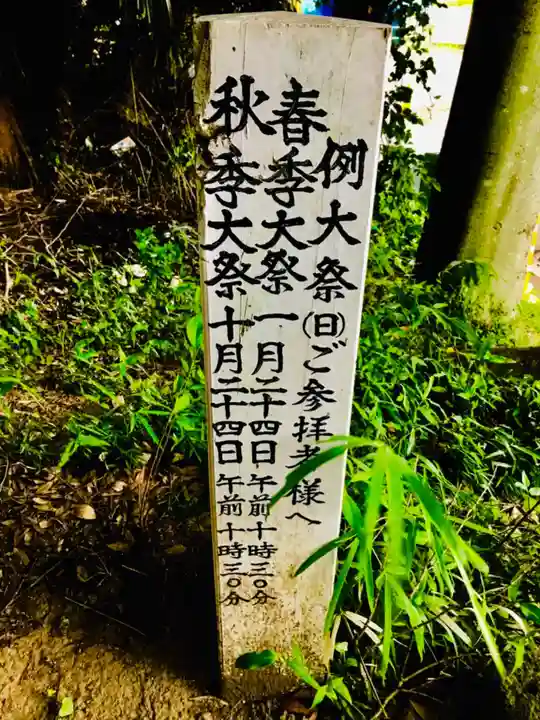 例大祭(日)ご参拝者様へ
春季大祭一月二十四日午前十時三〇分
秋季大祭十月二十四日午前十時三〇分